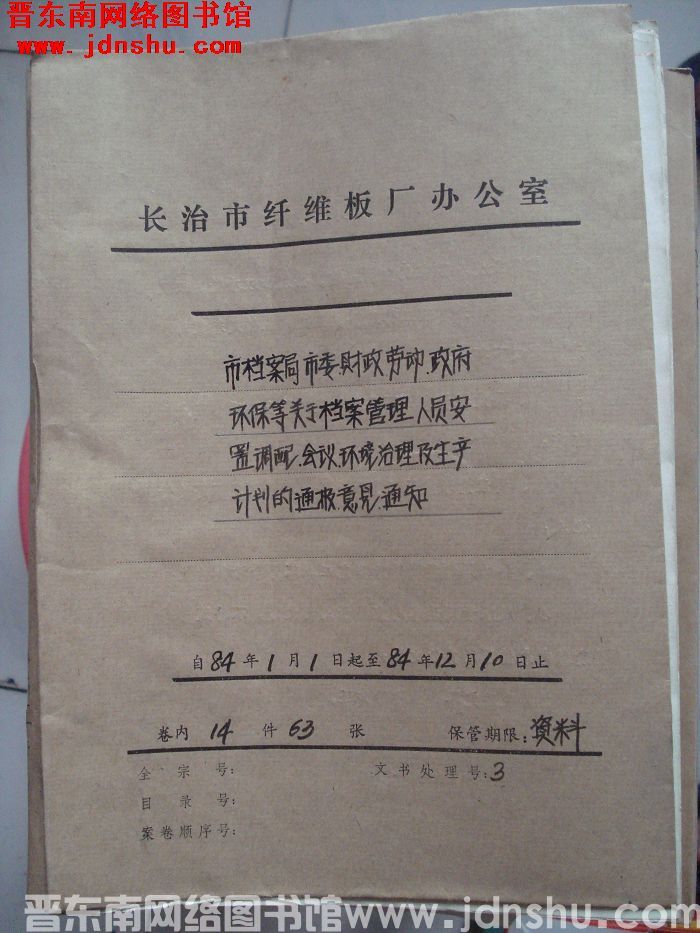 晋东南网络图书馆
www.jdnshu.com
长治市纤维板厂办公室
市档案局市委、财政劳动、政府
环保等关于档案管理、人员安
置调配、会议、环境治理及生产
计划的通报、意见、通知
自84年1月1日起至84年12月10日止
卷内 14 件 63 张 保管期限:资料
全宗号: 文书处理号:3
目录号:
案卷顺序号:
晋东南网络图书馆www.jdnshu.com